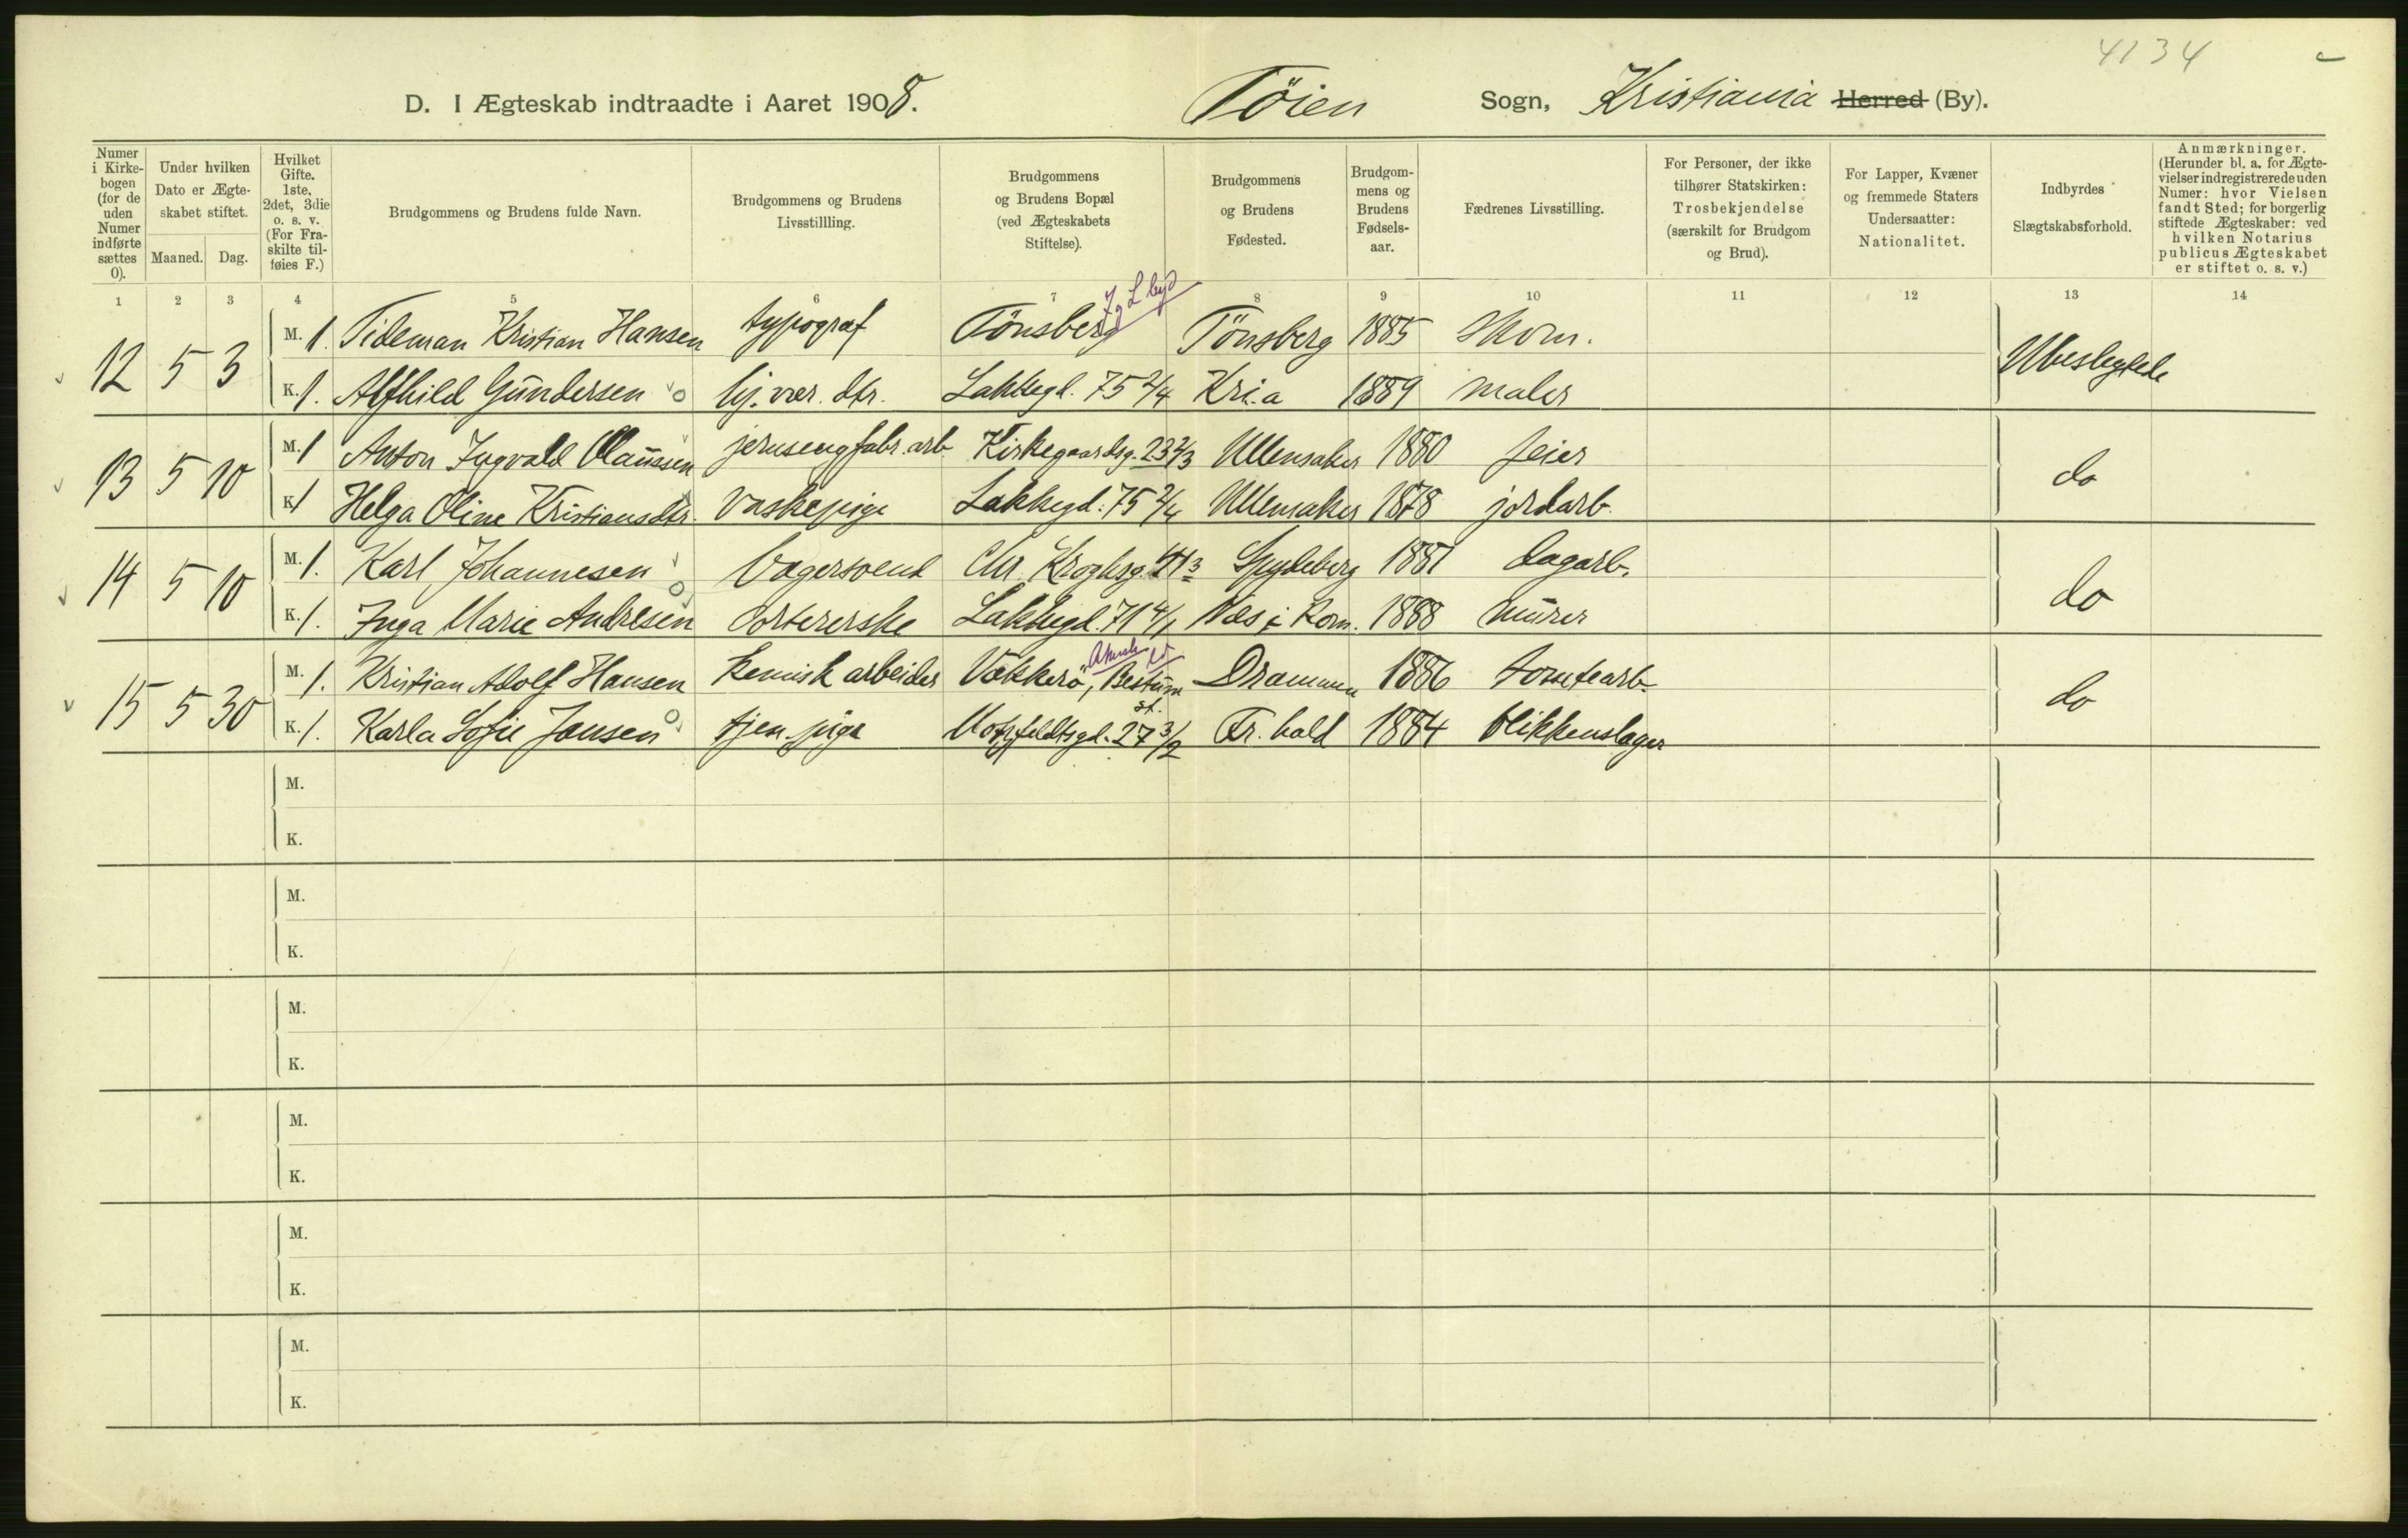 4134
D. I Ægteskab indtraadte i Aaret 1908. Töien Sogn, Kristiania Herred (By).
Numer i Kirke-bogen (for de uden Numer indførte sættes 0).
Under hvilken Dato er Ægte-skabet stiftet.
Maaned. Dag.
Hvilket Gifte. 1ste, 2det, 3die o. s. v. (For Fra-skilte til-føies F.)
Brudgommens og Brudens fulde Navn.
Brudgommens og Brudens Livsstillling.
Brudgommens og Brudens Bopæl (ved Ægteskabets Stiftelse).
Brudgommens og Brudens Fødested.
Brudgom-mens og Brudens Fødsels-aar.
Fædrenes Livsstilling.
For Personer, der ikke tilhører Statskirken: Trosbekjendelse (særskilt for Brudgom og Brud).
For Lapper, Kvæner og fremmede Staters Undersaatter: Nationalitet.
Indbyrdes Slægtskabsforhold.
Anmærkninger. (Herunder bl. a. for Ægte-vielser indregistrerede uden Numer: hvor Vielsen fandt Sted; for borgerlig stiftede Ægteskaber: ved hvilken Notarius publicus Ægteskabet er stiftet o. s. v.)
1 2 3 4 5 6 7 8 9 10 11 12 13 14
12 5 3 M. 1. Tideman Kristian Hansen typograf Tönsberg Tönsberg 1885 Skom. Ubeslegtede
K. 1. Alfhild Gundersen hj. vær. dtr. Lakkegd. 75 2/4 Kri.a 1889 maler
13 5 10 M. 1 Anton Ingvald Claussen jernsengfabr. arb Kirkegaardsg. 23 2/3 Ullensaker 1880 feier do
K. 1 Helga Oline Kristiansdtr. Vaskepige Lakkegd. 75 2/4 Ullensaker 1878 jordarb.
14 5 10 M. 1. Karl Johannesen Bagersvend Chr. Kroghsg. 41 3 Spydeberg 1881 dagarb. do
K. 1. Inga Marie Andresen Sorterske Lakkegd. 71 4/1 Næs i Rom. 1888 murer
15 5 30 M. 1. Kristian Adolf Hansen kemisk arbeider Vækkerö, Bestum st. Drammen 1886 tomtearb. do
K. 1. Karla Sofie Jansen tjen. pige Motzfeldtsgd. 27 3/2 Fr. hald 1884 blikkenslager
M.
K.
M.
K.
M.
K.
M.
K.
M.
K.
M.
K.